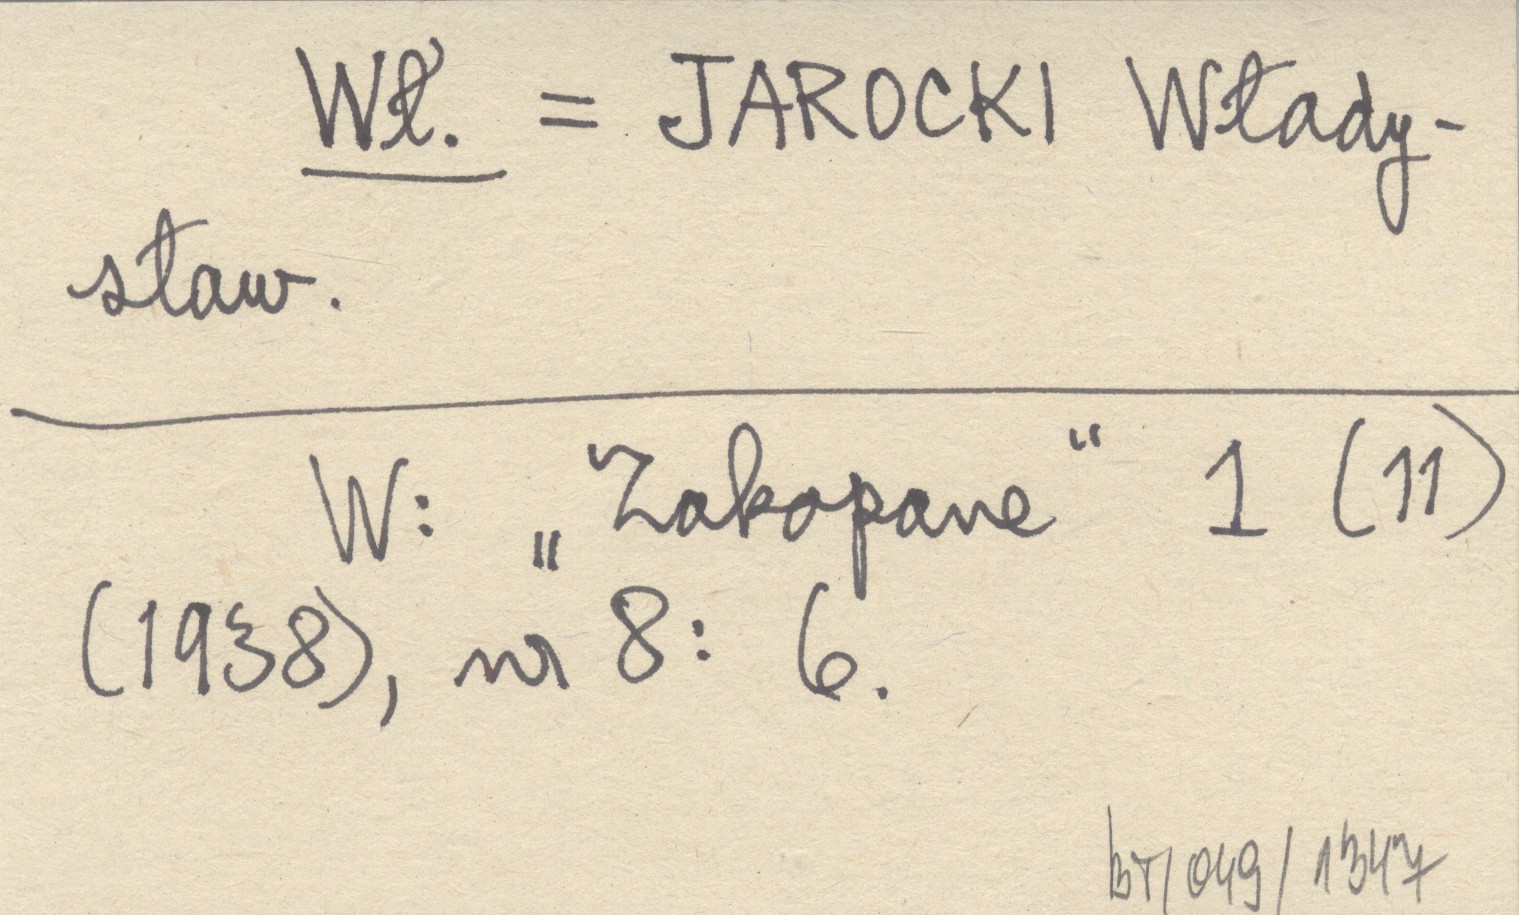 Wł. = JAROCKI Włady-
sław.
W: „Zakopane“ 1 (11)
(1938), nr 8: 6.
bT/049/1347